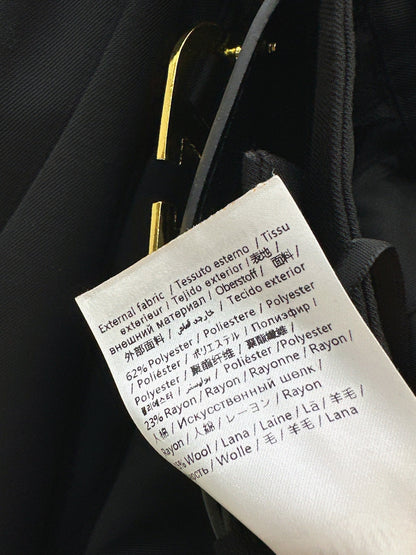 External fabric / Tessuto esterno / Tissu
extérieur / Tejido exterior / 表地 /
внешний материал / Oberstoff / 面料 /
外部面料 / / Tecido exterior
62% Polyester / Poliestere / Polyester
/ Poliéster / ポリエステル / Полиэфир /
Polyester / 聚酯纤维 / 聚酯纖維 /
폴리에스터 / بوليستر / Poliéster
23% Rayon / Rayon / Rayonne / Rayon /
Rayon / 人棉 / Искусственный шелк /
Rayon / 人絲 / レーヨン / Rayon
Wool / Lana / Laine / Lã / 羊毛 /
/ Wolle / 毛 / 羊毛 / Lana